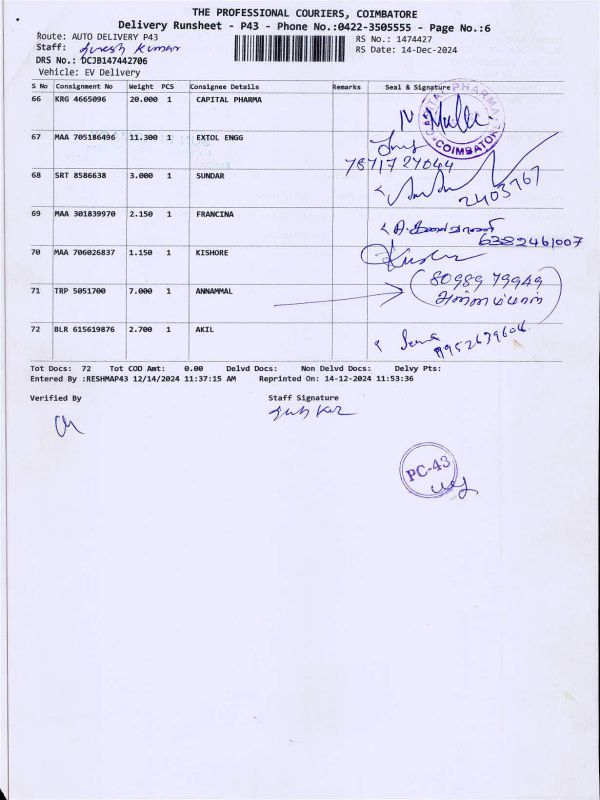 THE PROFESSIONAL COURIERS, COIMBATORE
Delivery Runsheet - P43 - Phone No.:0422-3505555 - Page No.:6
Route: AUTO DELIVERY P43
RS No.: 1474427
Staff: Suresh Kumar
RS Date: 14-Dec-2024
DRS No.: DCJB147442706
Vehicle: EV Delivery
S No Consignment No Weight PCS Consignee Details Remarks Seal & Signature
66 KRG 4665096 20.000 1 CAPITAL PHARMA
COIMBATORE
67 MAA 705186496 11.300 1 EXTOL ENGG
7871727044
68 SRT 8586638 3.000 1 SUNDAR
2403767
69 MAA 301839970 2.150 1 FRANCINA
6382461007
70 MAA 706026837 1.150 1 KISHORE
71 TRP 5051700 7.000 1 ANNAMMAL
80989 79949
அன்னம்மாள்
72 BLR 615619876 2.700 1 AKIL
Tot Docs: 72 Tot COD Amt: 0.00 Delvd Docs: Non Delvd Docs: Delvy Pts:
Entered By :RESHMAP43 12/14/2024 11:37:15 AM Reprinted On: 14-12-2024 11:53:36
Verified By Staff Signature
PC-43